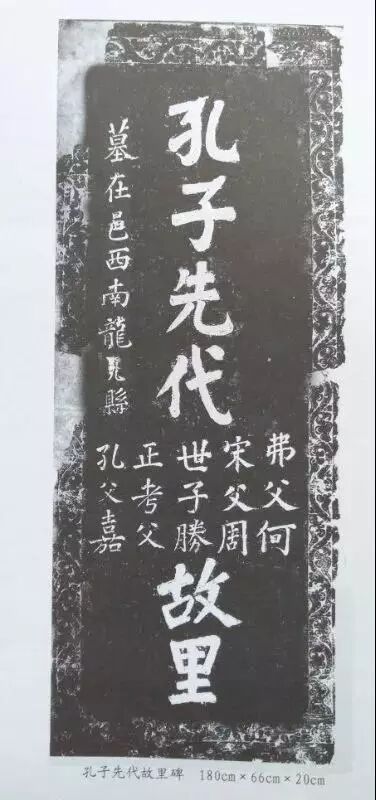 孔子先代
弗父何
宋父周
世子勝
正考父
孔父嘉
故里
墓在邑西南龍見縣
孔子先代故里碑 180cm×66cm×20cm